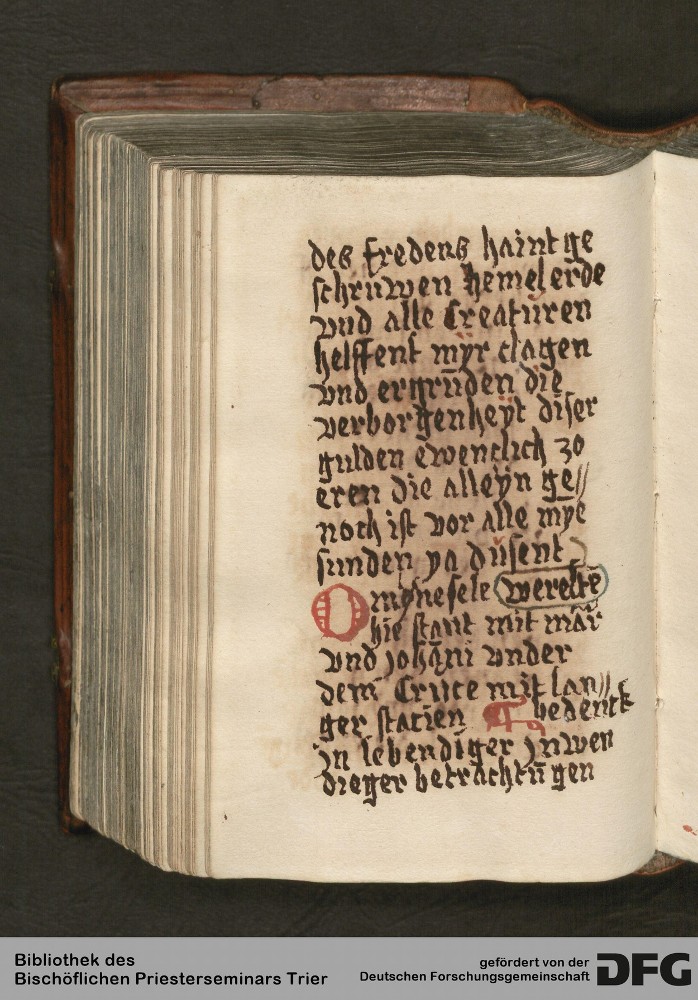 des fredens haint ge
schruwen hemel erde
vnd alle Creaturen
helffent myr clagen
vnd ergrūden die
verborgenheyt diser
gulden ewenclich zo
eren die alleyn ge//
noch ist vor alle mye
sunden ya dusent
O myne sele werestu
hie stant mit mār
vnd johāni vnder
dem Cruce mit lan//
ger stacien bedenck
jn lebendiger jnwen
dieger betrachtūgen
Bibliothek des
Bischöflichen Priesterseminars Trier
gefördert von der
Deutschen Forschungsgemeinschaft
DFG